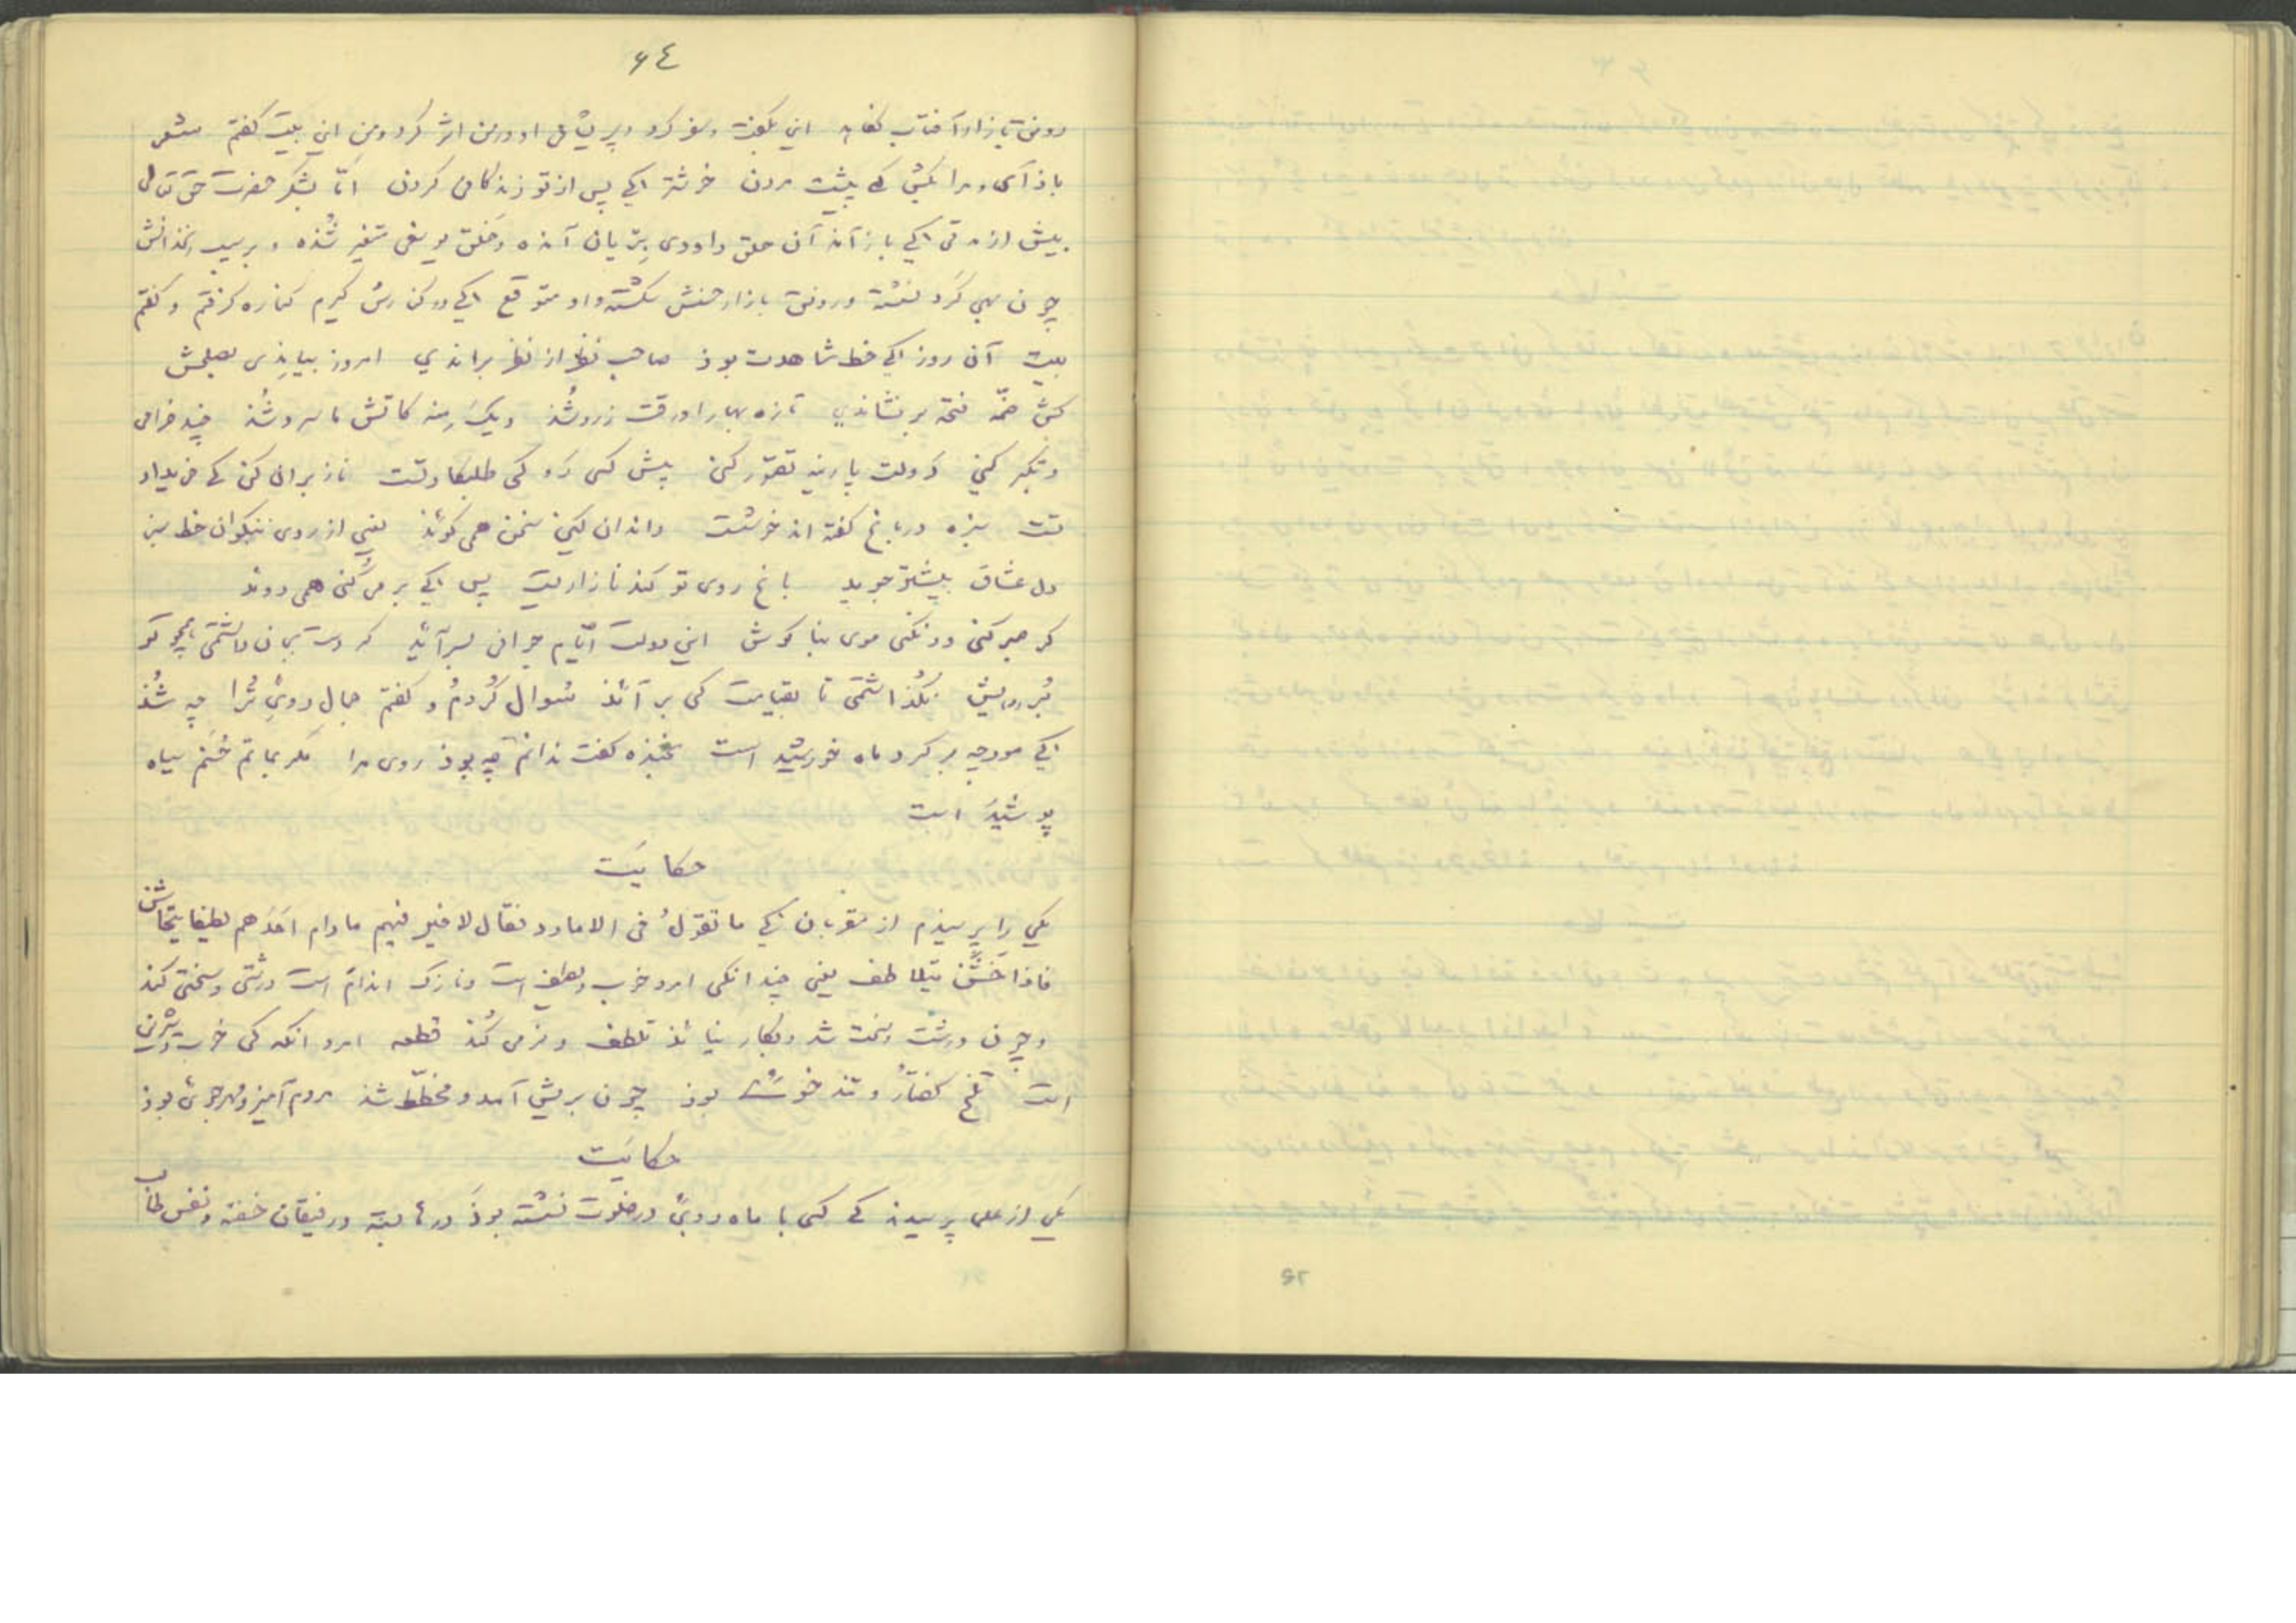 ٦٤
رونق بازار آفتاب نکاهد این بگفت و سفر کرد و پریشانی او در من اثر کرد و من این بیت گفتم شعر
باز آی و مرا بکش که پیشت مردن خوشتر اکی پس از تو زندکانی کردن امّا بشکر حضرت حق تعالی
پیش از مدتی اکی باز آمذ آن حلق داوودی بزیان آمذه و خلق یوسفی متغیر شُذه و بر سیب زنخذانش
چون بهی کرد نشسته و رونق بازار حسنش شکسته و او متوقع اکی در کنارش کیرم کناره کرفتم و کفتم
بیت آن روز اکی خط شاهدت بوذ صاحب نظر از نظر براندی امروز بیامذی بصلحش
کش ضمّه فتحه بر نشاندی تازه بهارا ورقت زرد شُذ دیک منه کاتش ما سرد شُذ چند خرامی
و تکبر کنی دَولت پارینه تصوّر کنی پیش کسی رَو کی طلبکار تست ناز بر ان کن کی خریدار
تست سبزه در باغ کفته اند خوشست داند ان کین سخن همی کوئذ یعنی از روی نیکوان خط سبز
دل عشاق بیشتر جوید باغ روی تو کندنا زاریست پس اکی بر می کنی همی روئذ
کر صبر کنی ور نکنی موی بنا کوش این دولت ایّام جوانی بسر آئذ کر دست بجان داشتمی همچو تو
بُر ریش نکذاشتمی تا بقیامت کی بر آئذ سُوال کردم و کفتم جمالِ رویِ تُرا چه شُذ
اکی مورچه بر کرد ماه خورشید است بخنده کفت ندانم چه بوذ روی مرا مکر بماتم حُسنم سیاه
پوشیدَ است
حکایَت
یکی را پرسیذم از مقربان کی ما تقولُ فی الامارد فقال لا خیر فیهم ما دام احَدُهم لطیفا یتخاشن
فاذا خَشُنَ یتلاطف یعنی چندانکی امرد خوب و لطیف است و نازک اندام است درشتی و سختی کند
و چون درشت و سخت شد و بکار نیائذ تلطف و نرمی کُنذ قطعه امرد انکه کی خوب و شیرین
است تلخ کفتارُ و تند خوست بوذ چون بریش آمد و مخطّط شذ مردم آمیز و مهر جوی بوذ
حکایَت
یکی از علما پرسیدند کی کسی با ماه روئی در خلوت نشسته بوذَ درها بسته و رفیقان خفته و نفس طالب